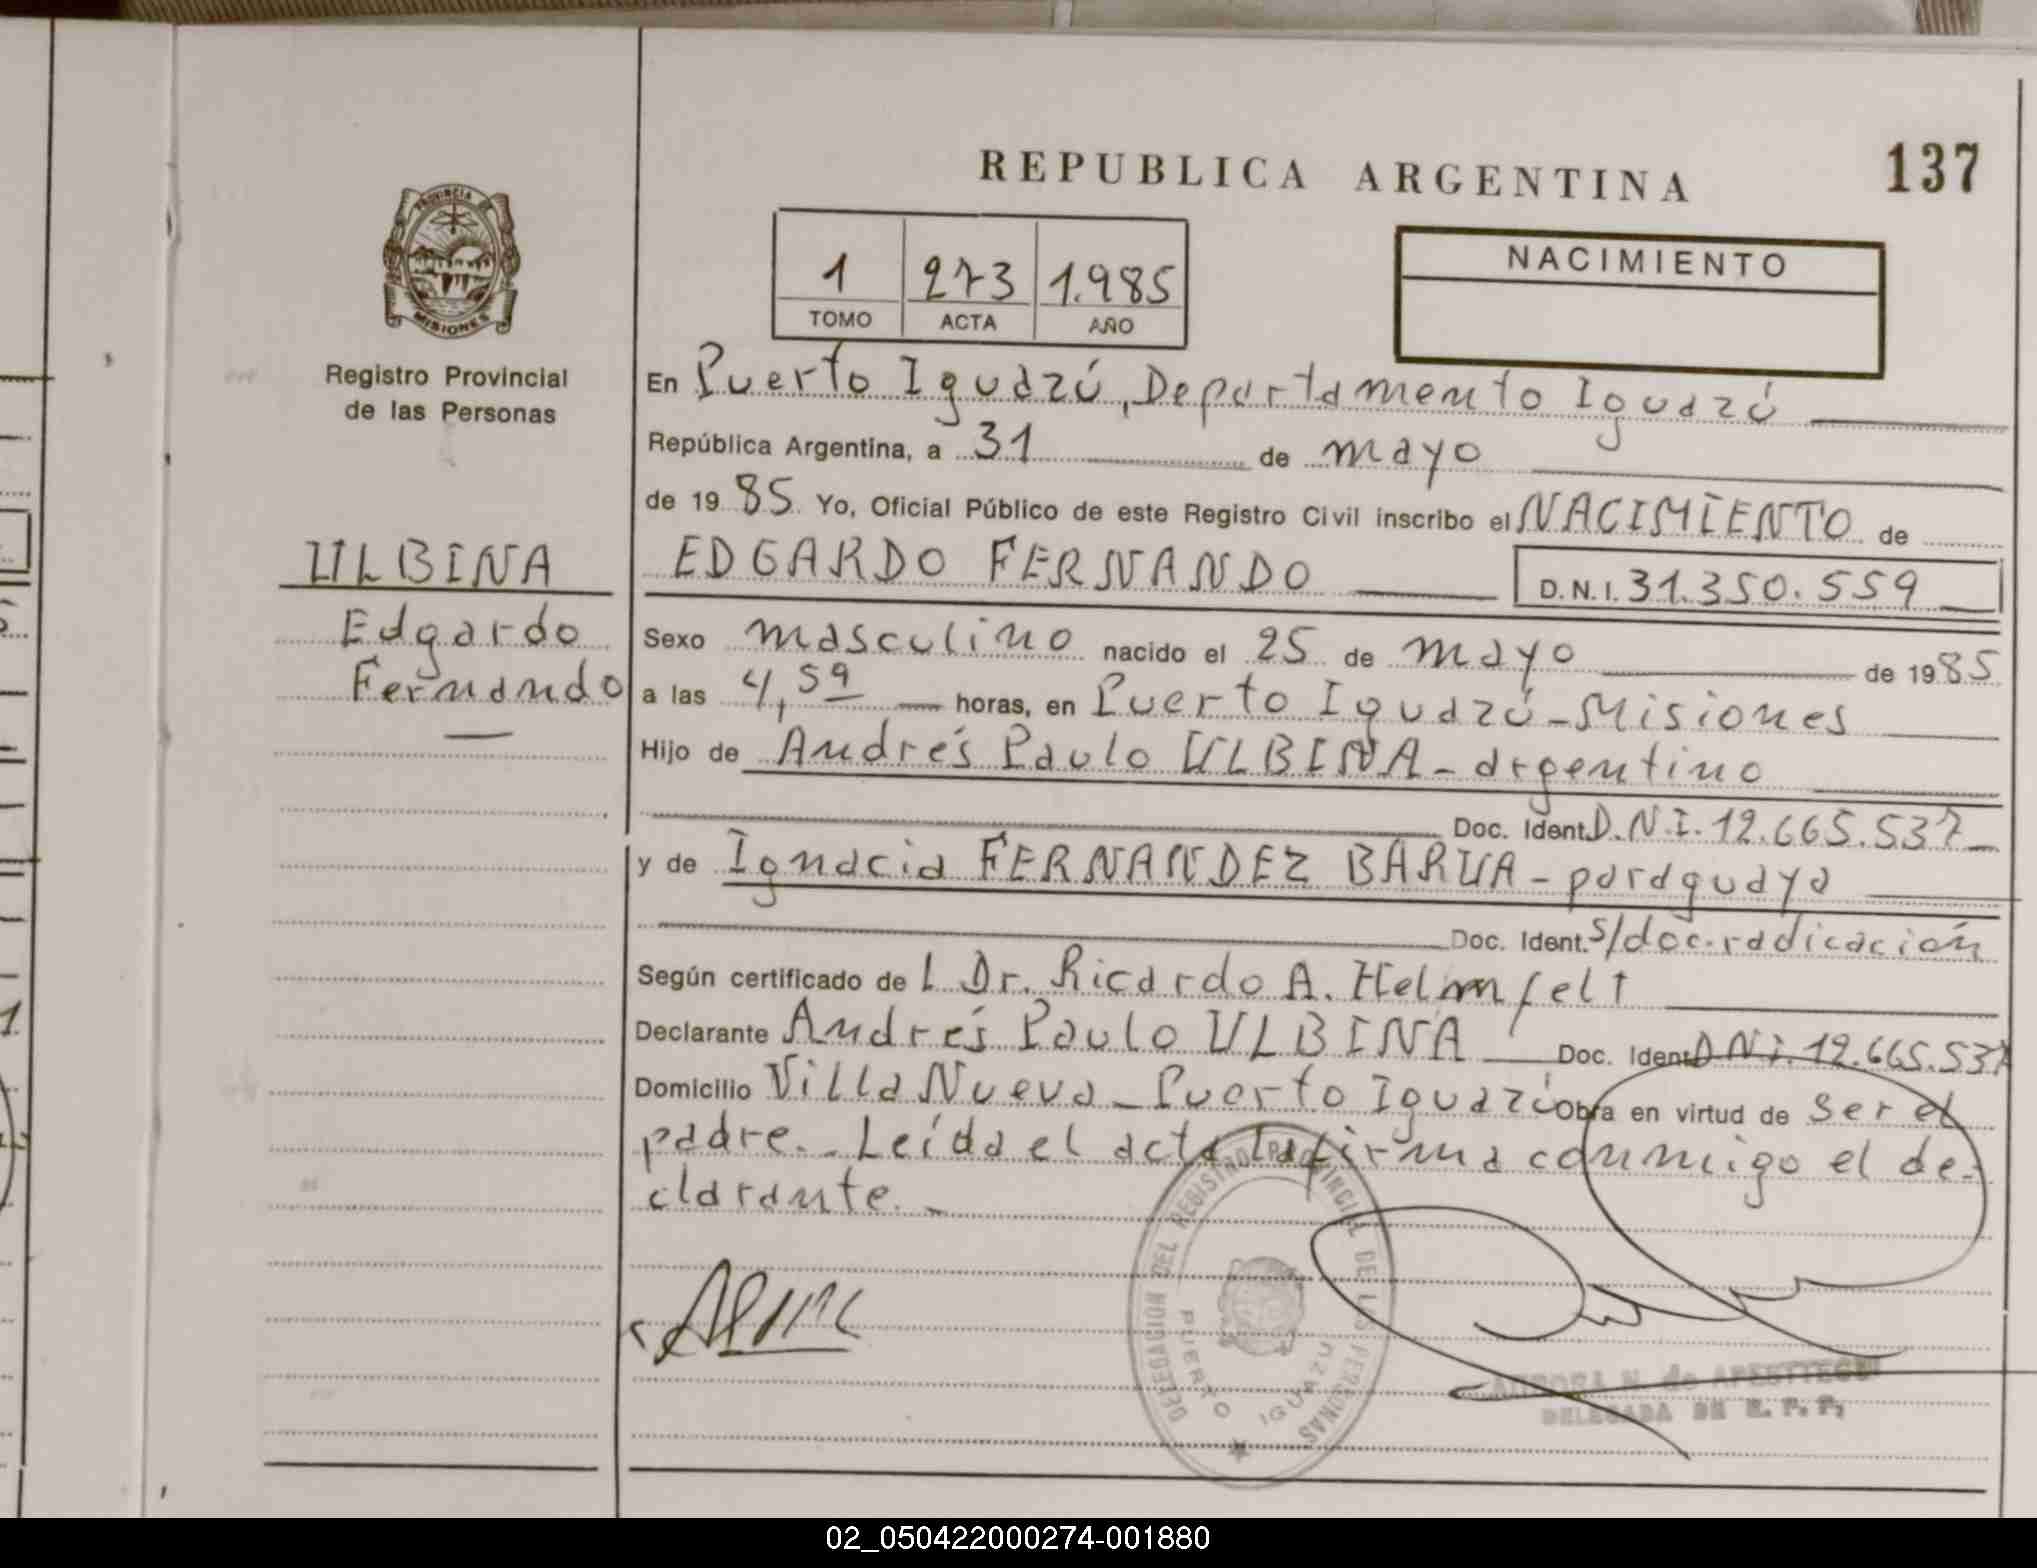 REPUBLICA ARGENTINA
137
PROVINCIA DE
MISIONES
Registro Provincial
de las Personas
1 273 1.985
TOMO ACTA AÑO
NACIMIENTO
En Puerto Iguazú, Departamento Iguazú
República Argentina, a 31 de mayo
de 1985 Yo, Oficial Público de este Registro Civil inscribo el NACIMIENTO de
ULBINA
Edgardo
Fernando
EDGARDO FERNANDO D.N.I. 31.350.559
Sexo masculino nacido el 25 de mayo de 1985
a las 4,59 horas, en Puerto Iguazú - Misiones
Hijo de Andrés Paulo ULBINA - argentino
Doc. Ident. D.N.I. 12.665.537
y de Ignacia FERNANDEZ BARUA - paraguaya
Doc. Ident. s/doc. radicación
Según certificado del Dr. Ricardo A. Helmfelt
Declarante Andrés Paulo ULBINA Doc. Ident. D.N.I. 12.665.537
Domicilio Villa Nueva - Puerto Iguazú Obra en virtud de ser el
padre. - Leída el acta la firma conmigo el de-
clarante. -
DELEGACION DEL REGISTRO PROVINCIAL DE LAS PERSONAS
PUERTO IGUAZU
AURORA N. de APESTTEGUI
DELEGADA DE R. P. P.
02_050422000274-001880